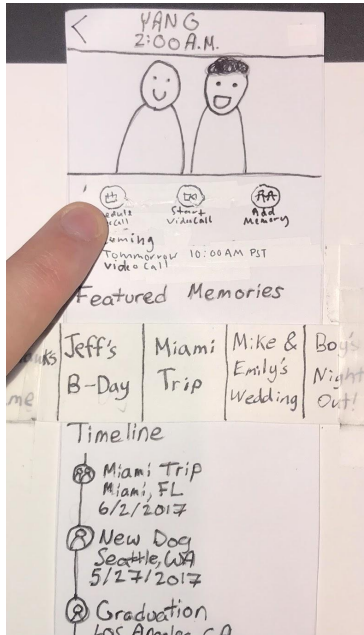 YANG
2:00 A.M.
Call
Start
Video Call
Add
Memory
oming
Tommorrow 10:00 AM PST
Video Call
Featured Memories
Jeff's
B-Day
Miami
Trip
Mike &
Emily's
Wedding
Boy's
Night
Out!
Timeline
Miami Trip
Miami, FL
6/2/2017
New Dog
Seattle, WA
5/27/2017
Graduation
Los Angeles, CA